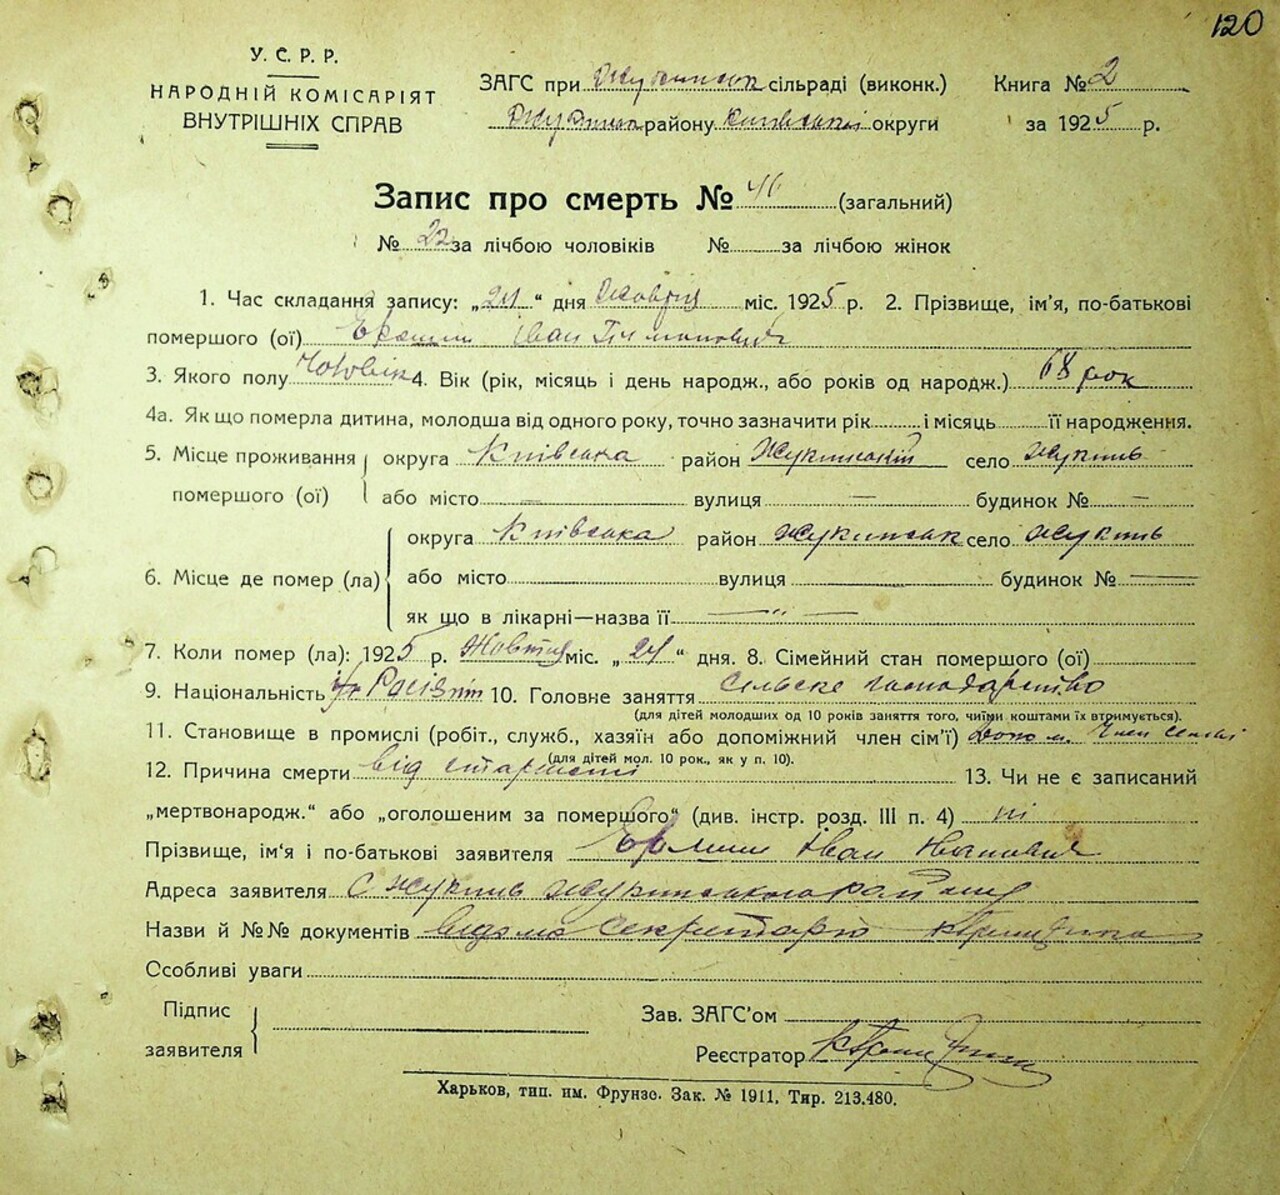 120
У.С.Р.Р.
НАРОДНІЙ КОМІСАРІЯТ
ВНУТРІШНІХ СПРАВ
ЗАГС при сільраді (виконк.)
району Київської округи
Книга № 2
за 1925 р.
Запис про смерть № (загальний)
№ 22 за лічбою чоловіків № за лічбою жінок
1. Час складання запису: „24“ дня Жовтня міс. 1925 р. 2. Прізвище, ім’я, по-батькові
помершого (ої) Іван
3. Якого полу Чоловік 4. Вік (рік, місяць і день народж., або років од народж.) 68 рок
4а. Як що померла дитина, молодша від одного року, точно зазначити рік і місяць її народження.
5. Місце проживання помершого (ої) округа Київська район Жукинський село Жукинь
або місто — вулиця — будинок № —
6. Місце де помер (ла) округа Київська район Жукинськ село Жукинь
або місто вулиця — будинок № —
як що в лікарні—назва її — „ —
7. Коли помер (ла): 1925 р. Жовтня міс. „24“ дня. 8. Сімейний стан помершого (ої)
9. Національність 10. Головне заняття Сельске господарство
(для дітей молодших од 10 років заняття того, чиїми коштами їх втримується).
11. Становище в промислі (робіт., служб., хазяїн або допоміжний член сім’ї) Допом. член семьї
(для дітей мол. 10 рок., як у п. 10).
12. Причина смерти від старости 13. Чи не є записаний
„мертвонародж.“ або „оголошеним за помершого“ (див. інстр. розд. III п. 4) ні
Прізвище, ім‘я і по-батькові заявителя Іван Іванович
Адреса заявителя с Жукинь Жукинського району
Назви й №№ документів відомо секретарю
Особливі уваги
Підпис заявителя
Зав. ЗАГС’ом
Реєстратор
Харьков, тип. им. Фрунзе. Зак. № 1911. Тир. 213.480.